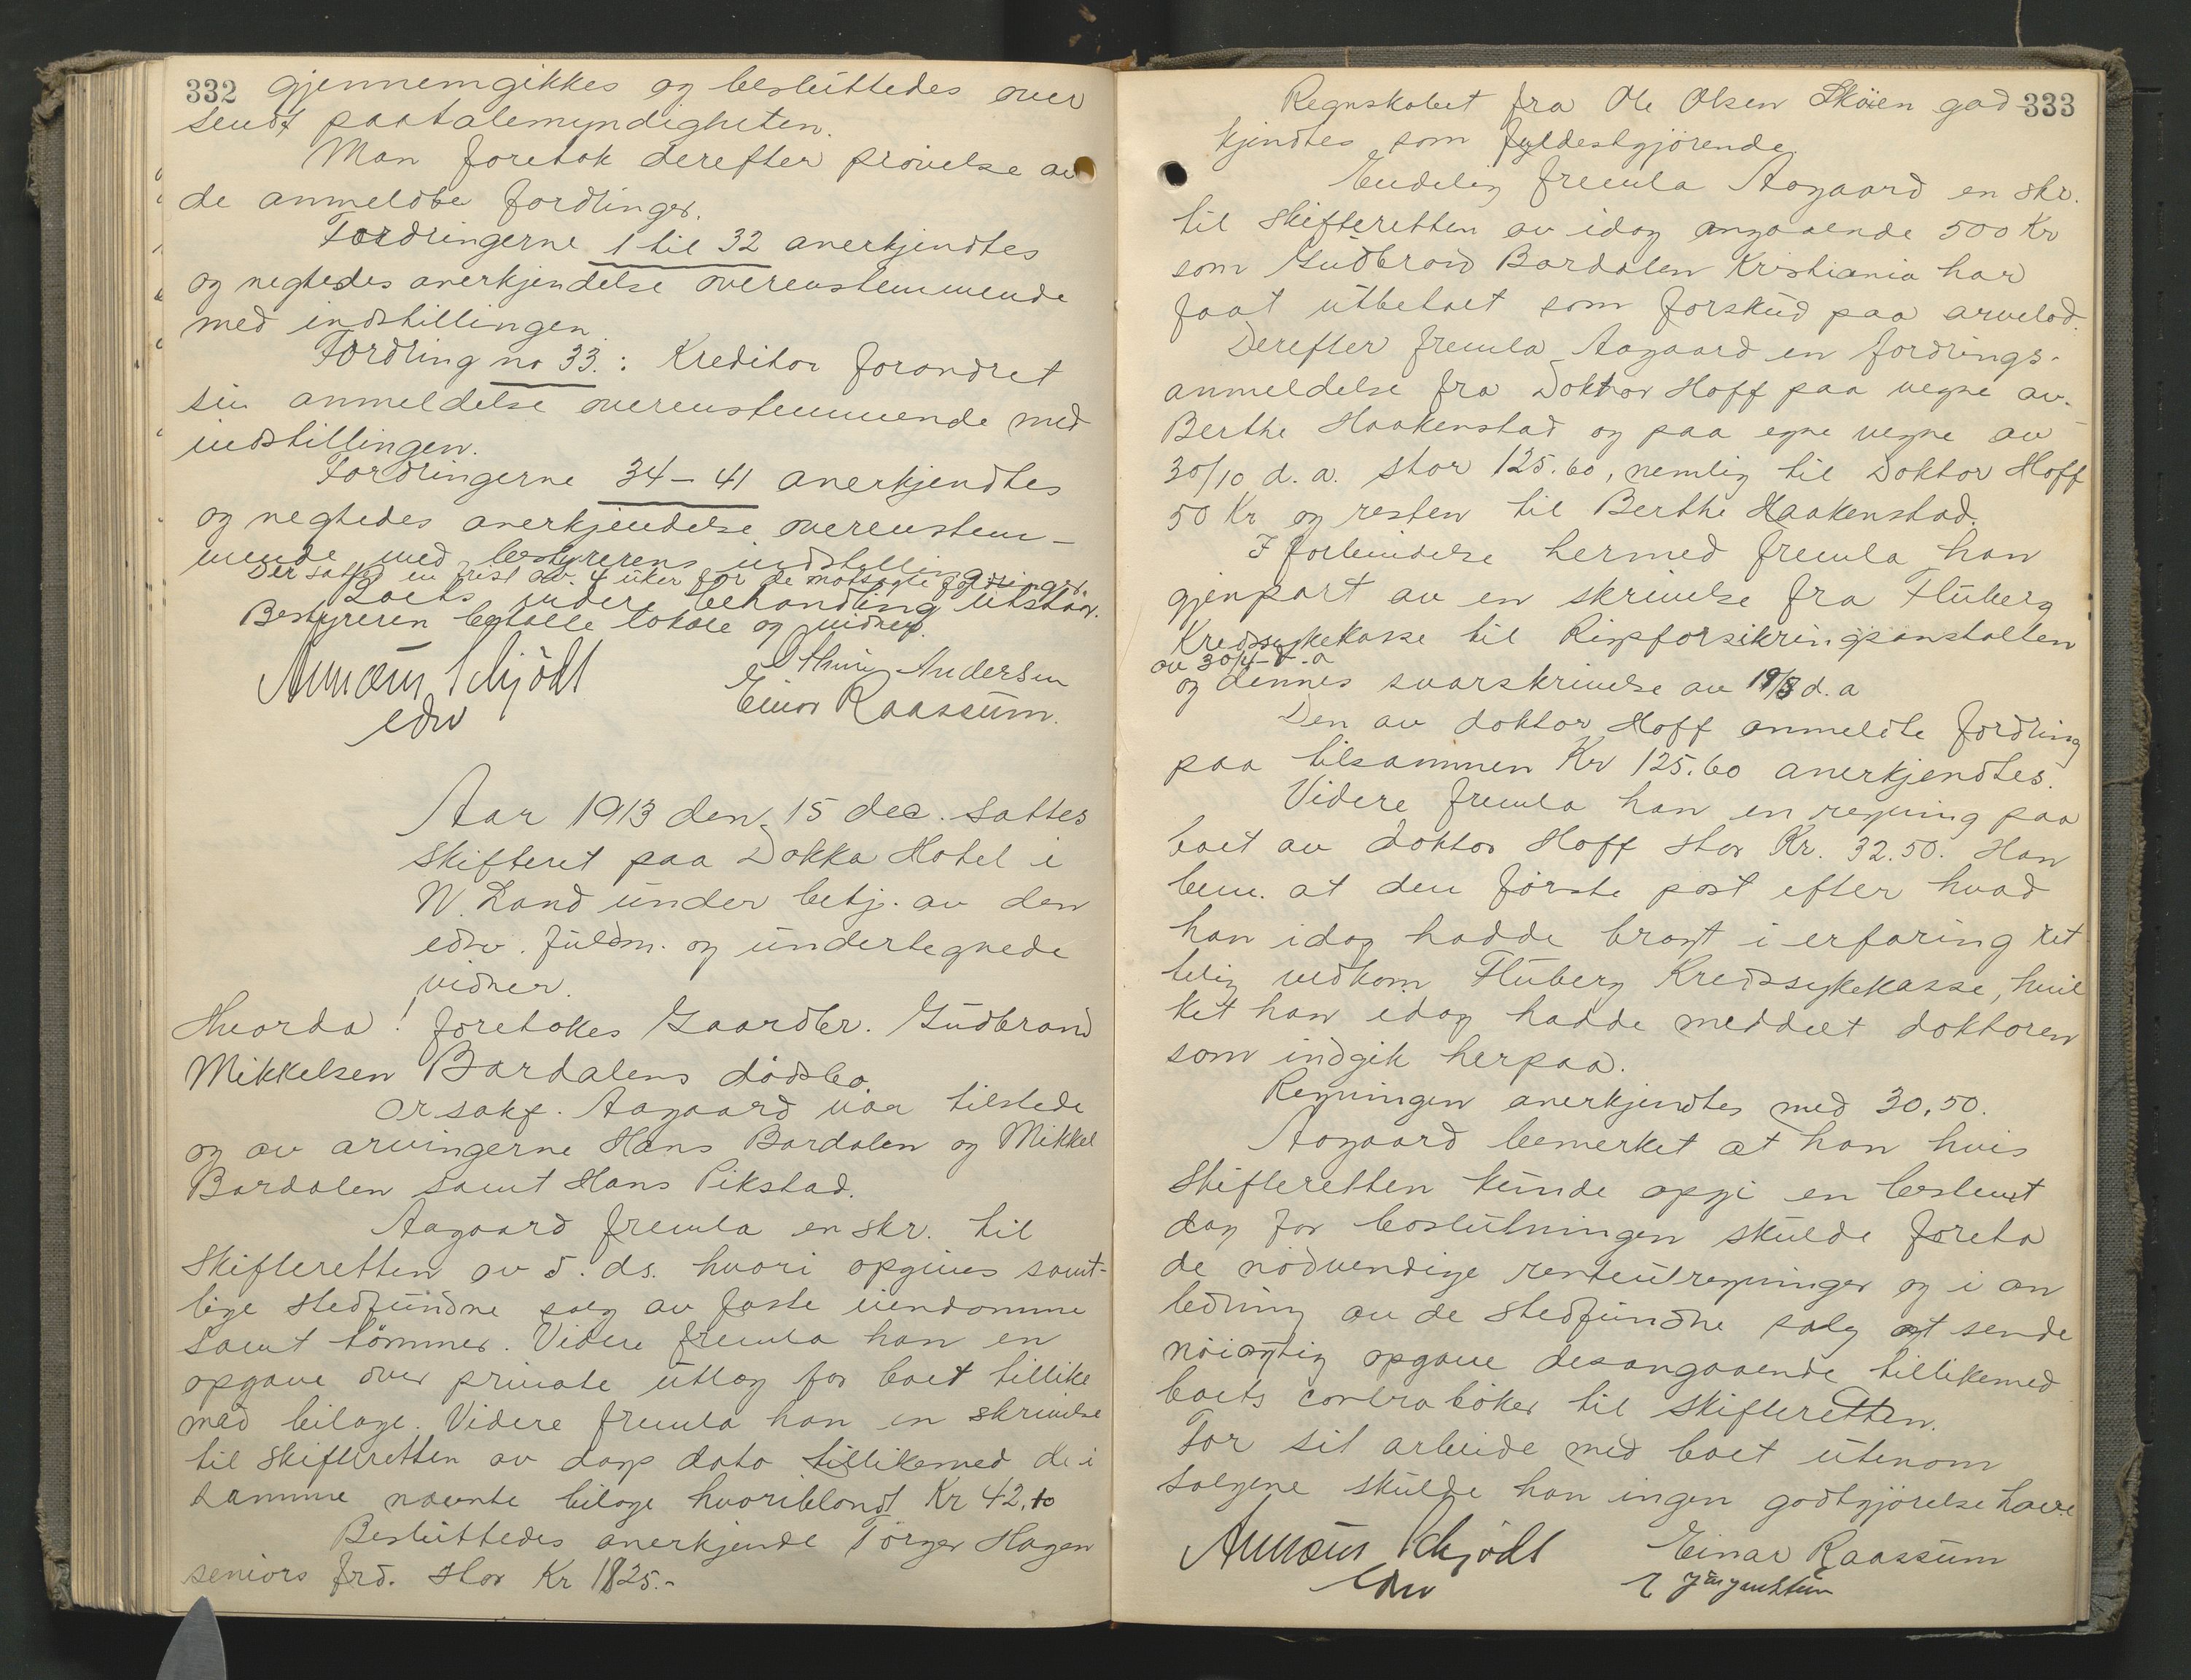 332 gjennemgikkes og besluttedes over
sendt paatalemyndigheten.
Man foretok derefter prøvelse av
de anmeldte fordringer.
Fordringerne 1 til 32 anerkjendtes
og negtedes anerkjendelse overensstemmende
med indstillingen.
Fordring no 33.: Kreditor forandret
sin anmeldelse overensstemmende med
indstillingen.
Fordringerne 34-41 anerkjendtes
og negtedes anerkjendelse overensstem-
mende med bestyrerens indstilling
Der sattes en frist av 4 uker for de motsagte fordringer.
Boets videre behandling utstaar.
Bestyreren betalte lokale og vidner.
Schjødt
edsv
Andersen
Einar Raassum.
Aar 1913 den 15 dec. sattes
skifteret paa Dokka Hotel i
N. Land under betj. av den
edsv. fuldm. og undertegnede
vidner.
Hvorda! foretokes Gaardbr. Gudbrand
Mikkelsen Bardalens dødsbo.
Orsakf. Aagaard var tilstede
og av arvingerne Hans Bardalen og Mikkel
Bardalen samt Hans Pikstad.
Aagaard fremla en skr. til
Skifteretten av 5. ds. hvori opgives samt-
lige stedfundne salg av faste eiendomme
samt tømmer. Videre fremla han en
opgave over private utlæg for boet tillike
med bilage. Videre fremla han en skrivelse
til skifteretten av dags dato tillikemed de i
samme nævnte bilage hvoriblandt Kr 42,10
Besluttedes anerkjende Torger Hagen
seniors frd. stor Kr 1825.-
Regnskabet fra Ole Olsen Skøien god- 333
kjendtes som fyldestgjørende.
Endelig fremla Aagaard en skr.
til skifteretten av idag angaaende 500 Kr
som Gudbrand Bardalen Kristiania har
faat utbetalt som forskud paa arvelod.
Derefter fremla Aagaard en fordrings-
anmeldelse fra Doktor Hoff paa vegne av
Berthe Haakenstad og paa egne vegne av
30/10 d. a. stor 125.60, nemlig til Doktor Hoff
50 Kr og resten til Berthe Haakenstad.
I forbindelse hermed fremla han
gjenpart av en skrivelse fra Fluberg
Kredssykekasse til Riksforsikringsanstalten
av 30/4 d.a
og dennes svarskrivelse av 19/8 d. a
Den av doktor Hoff anmeldte fordring
paa tilsammen Kr 125.60 anerkjendtes.
Videre fremla han en regning paa
boet av doktor Hoff stor Kr. 32.50. Han
bem. at den første post efter hvad
han idag hadde bragt i erfaring ret
telig vedkom Fluberg Kredssykekasse, hvil
ket han idag hadde meddelt doktoren
som indgik herpaa.
Regningen anerkjendtes med 30,50.
Aagaard bemerket at han hvis
Skifteretten kunde opgi en bestemt
dag for boslutningen skulde foreta
de nødvendige renteutregninger og i an
ledning av de stedfundne salg at sende
nøiagtig opgave desangaaende tillikemed
boets contrabøker til skifteretten.
For sit arbeide med boet utenom
salgene skulde han ingen godtgjørelse have
Schjødt
edsv
Einar Raassum